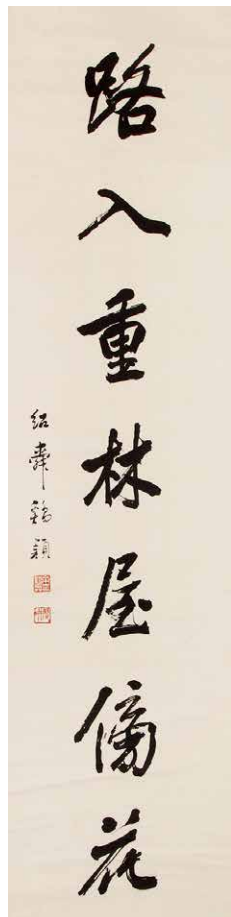 路入重林屋傍花
紹舜